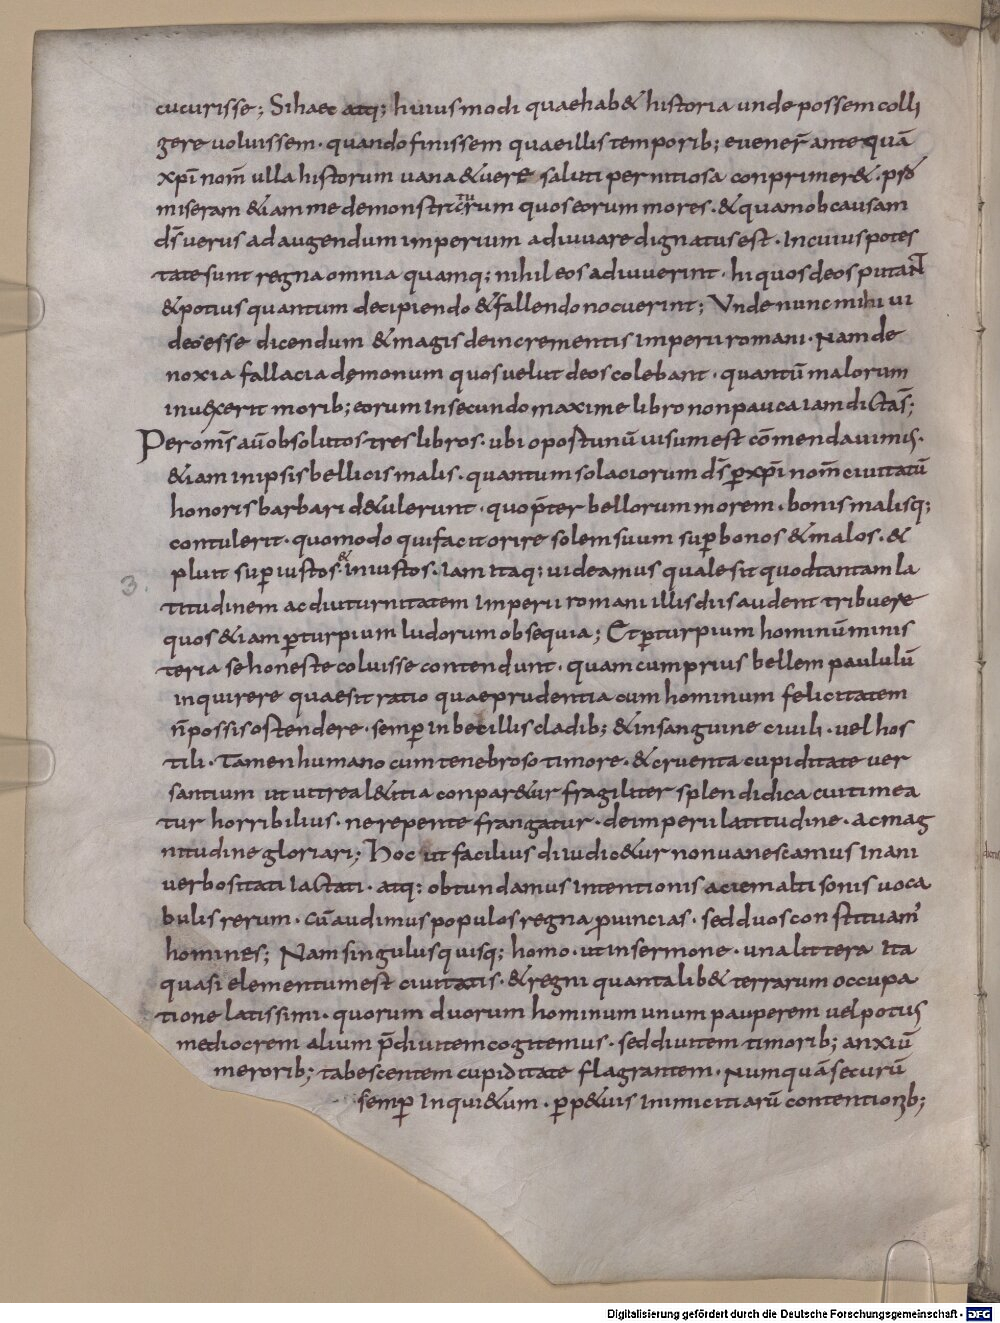 cucurisse; Si haec atq; huiusmodi quae hab& historia unde possem colli
gere uoluissem · quando finissem quae illis temporib; euener̄ antequā
xpī nom̄ ulla historum uana & uere saluti pernitiosa conprimer& ·
miseram &iam me demonstraturum quos eorum mores · & quam ob causam
ds̄ uerus ad augendum imperium adiuuare dignatus est · In cuius potes
tate sunt regna omnia quamq; nihil eos adiuuerint · hi quos deos putant
& potius quantum decipiendo & fallendo nocuerint; Unde nunc mihi ui
deo esse dicendum & magis de incrementis imperii romani · Nam de
noxia fallacia dęmonum quos uelut deos colebant · quantū malorum
inuexerit morib; eorum in secundo maxime libro non pauca iam dicta s̄;
Per om̄s aū obsolutos tres libros · ubi oportunū uisum est cōmendauimus ·
&iam in ipsis bellicis malis · quantum solaciorum ds̄ ꝑ xpī nom̄ ciuitatū
honoris barbari d&ulerunt · quo p̄ter bellorum morem · bonis malisq;
contulerit · quomodo qui facit orire solem suum suꝑ bonos & malos · &
pluit suꝑ iustos & iniustos · Iam itaq; uideamus quale sit quod tantam la
titudinem ac diuturnitatem imperii romani illis diis audent tribuere
quos &iam ꝑ turpium ludorum obsequia; Et ꝑ turpium hominū minis
teria se honeste coluisse contendunt · quamcum prius bellem paululū
inquirere quae sit ratio quae prudentia cum hominum felicitatem
n̄ possis ostendere · semꝑ in becillis cladib; & in sanguine ciuili · uel hos
tili · Tamen humano cum tenebroso timore · & cruenta cupiditate uer
santium ut uitrea l&itia conpar&ur fragiliter splendidica cui timea
tur horribilius · ne repente frangatur · de imperii latitudine · ac mag
nitudine gloriari; Hoc ut facilius diiudic&ur non uanescamus inani
uerbositati iactati · atq; obtundamus intentionis aciem altisonis uoca
bulis rerum · cū audimus populos regna ꝓuincias · sed duos constituam'
homines; Nam singulus quisq; homo · ut in sermone · una littera ita
quasi elementum est ciuitatis · & regni quantalib& terrarum occupa
tione latissimi · quorum duorum hominum unum pauperem uel potius
mediocrem alium p̄diuitem cogitemus · sed diuitem timorib; anxiū
merorib; tabescentem cupiditate flagrantem · Numquā securū
semꝑ inqui&um · ꝑp&uis inimicitiarū contentionib;
3.
Digitalisierung gefördert durch die Deutsche Forschungsgemeinschaft - DFG